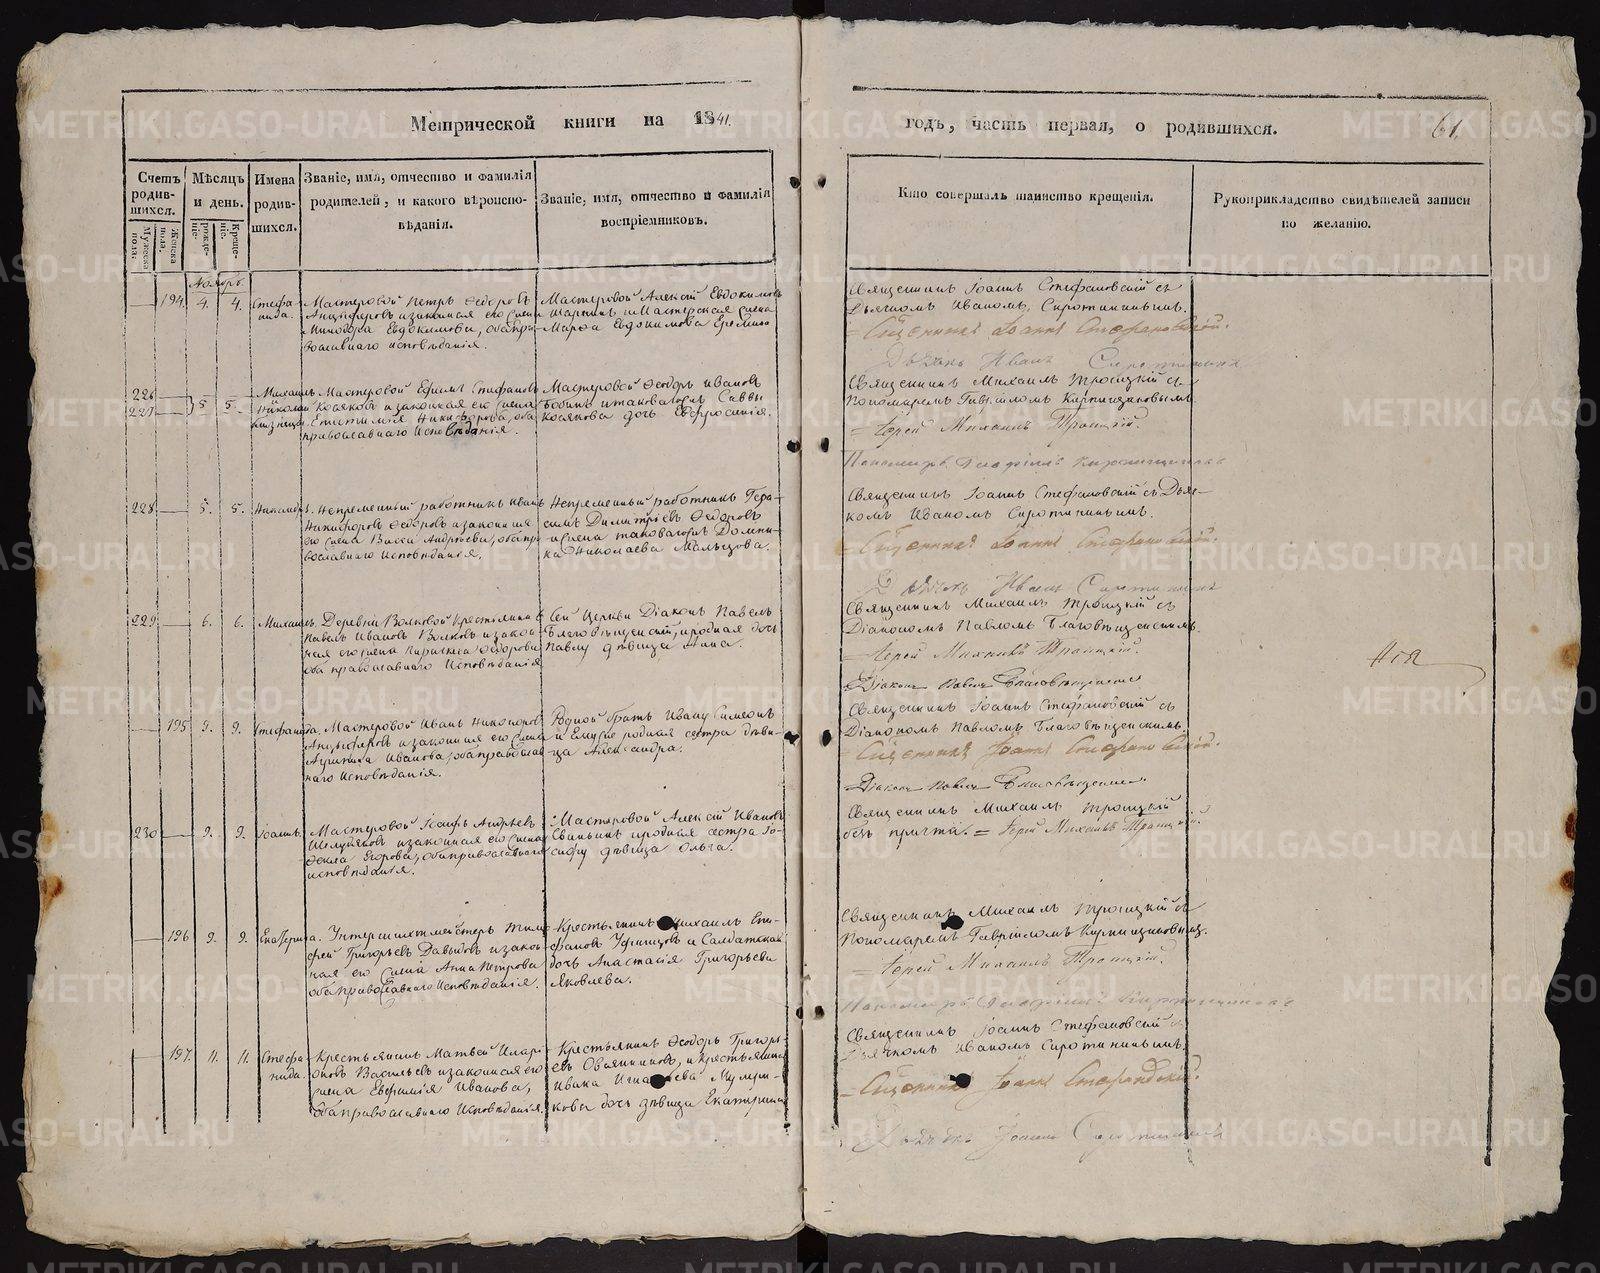 Метрической книги на 1841.
годъ, часть первая, о родившихся.
61.
Счетъ родив-шихся.
Мужеска пола.
Женска пола.
Мѣсяцъ и день.
рожде-нія.
Креще-нія.
Имена родив-шихся.
Званіе, имя, отчество и фамилія родителей, и какого вѣроиспо-вѣданія.
Званіе, имя, отчество и фамилія воспріемниковъ.
Кто совершалъ таинство крещенія.
Рукоприкладство свидѣтелей записи по желанію.
Ноябрь
194. 4. 4. Стефа-нида.
Мастеровой Петръ Ѳедоровъ
Анцыферовъ и законная его жена
Евдокимова, обаправо-
славнаго исповѣданія.
Мастеровой Алексій Евдокимовъ
Марѳа Евдокимова Еремина
Священникъ Іоаннъ Стефановскій съ
Дьячкомъ Иваномъ Сиротининымъ.
Священникъ Іоаннъ Стефановскій.
Дьячекъ Иванъ Сиротининъ
226
227
5. 5.
Михаилъ
Николай
близнецы
Мастеровой Ефимъ Стефановъ
Косяковъ и законная его жена
Никифорова, оба
православнаго исповѣданія.
Мастеровой Ѳеодоръ Ивановъ
Бобинъ и таковагожъ Саввы
Косякова дочь Евфросинія.
Священникъ Михаилъ Троицкій съ
Пономаремъ Гавріиломъ Кирпищиковымъ
Іерей Михаилъ Троицкій.
Пономарь Гавріилъ Кирпищиковъ
228 5. 5.
Непременный работникъ Иванъ
Никифоровъ Ѳедоровъ и законная
его жена Васса Андреева, обапра-
вославнаго исповѣданія.
Непременный работникъ Гера-
симъ Димитріевъ Ѳедоровъ
и жена таковагожъ Домни-
ка Николаева Мальцова.
Священникъ Іоаннъ Стефановскій съ Дьяч-
комъ Иваномъ Сиротининымъ.
Священникъ Іоаннъ Стефановскій.
Дьячекъ Иванъ Сиротининъ
229 6. 6. Михаилъ.
Деревни Волковой крестьянинъ
Павелъ Ивановъ Волковъ и закон-
ная его жена Ѳедорова
оба православнаго исповѣданія
Сей Церкви Діаконъ Павелъ
Благовѣщенскій, и родная дочь
Павлу дѣвица Анна.
Священникъ Михаилъ Троицкій съ
Діакономъ Павломъ Благовѣщенскимъ.
Іерей Михаилъ Троицкій.
Діаконъ Павелъ Благовѣщенскій
195 9. 9. Стефанида.
Мастеровой Иванъ Никифоровъ
Анцыферовъ и законная его жена
Иванова, обаправослав-
наго исповѣданія.
Родной братъ Ивану Симеонъ
и Ему же родная сестра дѣви-
ца Александра.
Священникъ Іоаннъ Стефановскій съ
Діакономъ Павломъ Благовѣщенскимъ.
Священникъ Іоаннъ Стефановскій.
Діаконъ Павелъ Благовѣщенскій
230 9. 9. Іоаннъ.
Мастеровой Іосифъ Андреевъ
и законная его жена
Ѳекла Егорова, обаправославнаго
исповѣданія.
Мастеровой Алексій Ивановъ
Свиньинъ и родная сестра Іо-
сифу дѣвица Ольга.
Священникъ Михаилъ Троицкій
безъ причта. = Іерей Михаилъ Троицкій.
196 9. 9. Екатерина.
Унтершихтмейстеръ Тимо-
фей Григорьевъ Давыдовъ и закон-
ная его жена Анна Петрова
обаправославнаго исповѣданія.
Крестьянинъ Михаилъ Епи-
фановъ и Солдатская
дочь Анастасія Григорьева
Яковлева.
Священникъ Михаилъ Троицкій съ
Пономаремъ Гавріиломъ Кирпищиковымъ.
Іерей Михаилъ Троицкій.
Пономарь Гавріилъ Кирпищиковъ
197. 11. 11. Стефа-нида.
Крестьянинъ Матвей Илар-
оновъ Васильевъ и законная его
жена Евфимія Иванова,
обаправославнаго исповѣданія.
Крестьянинъ Ѳеодоръ Григорь-
евъ Овсянниковъ, и крестьянина
Ивана Игнатьева
кова дочь дѣвица Екатерина
Священникъ Іоаннъ Стефановскій съ
Дьячкомъ Иваномъ Сиротининымъ.
Священникъ Іоаннъ Стефановскій.
Дьячекъ Іоаннъ Сиротининъ
METRIKI.GASO-URAL.RU